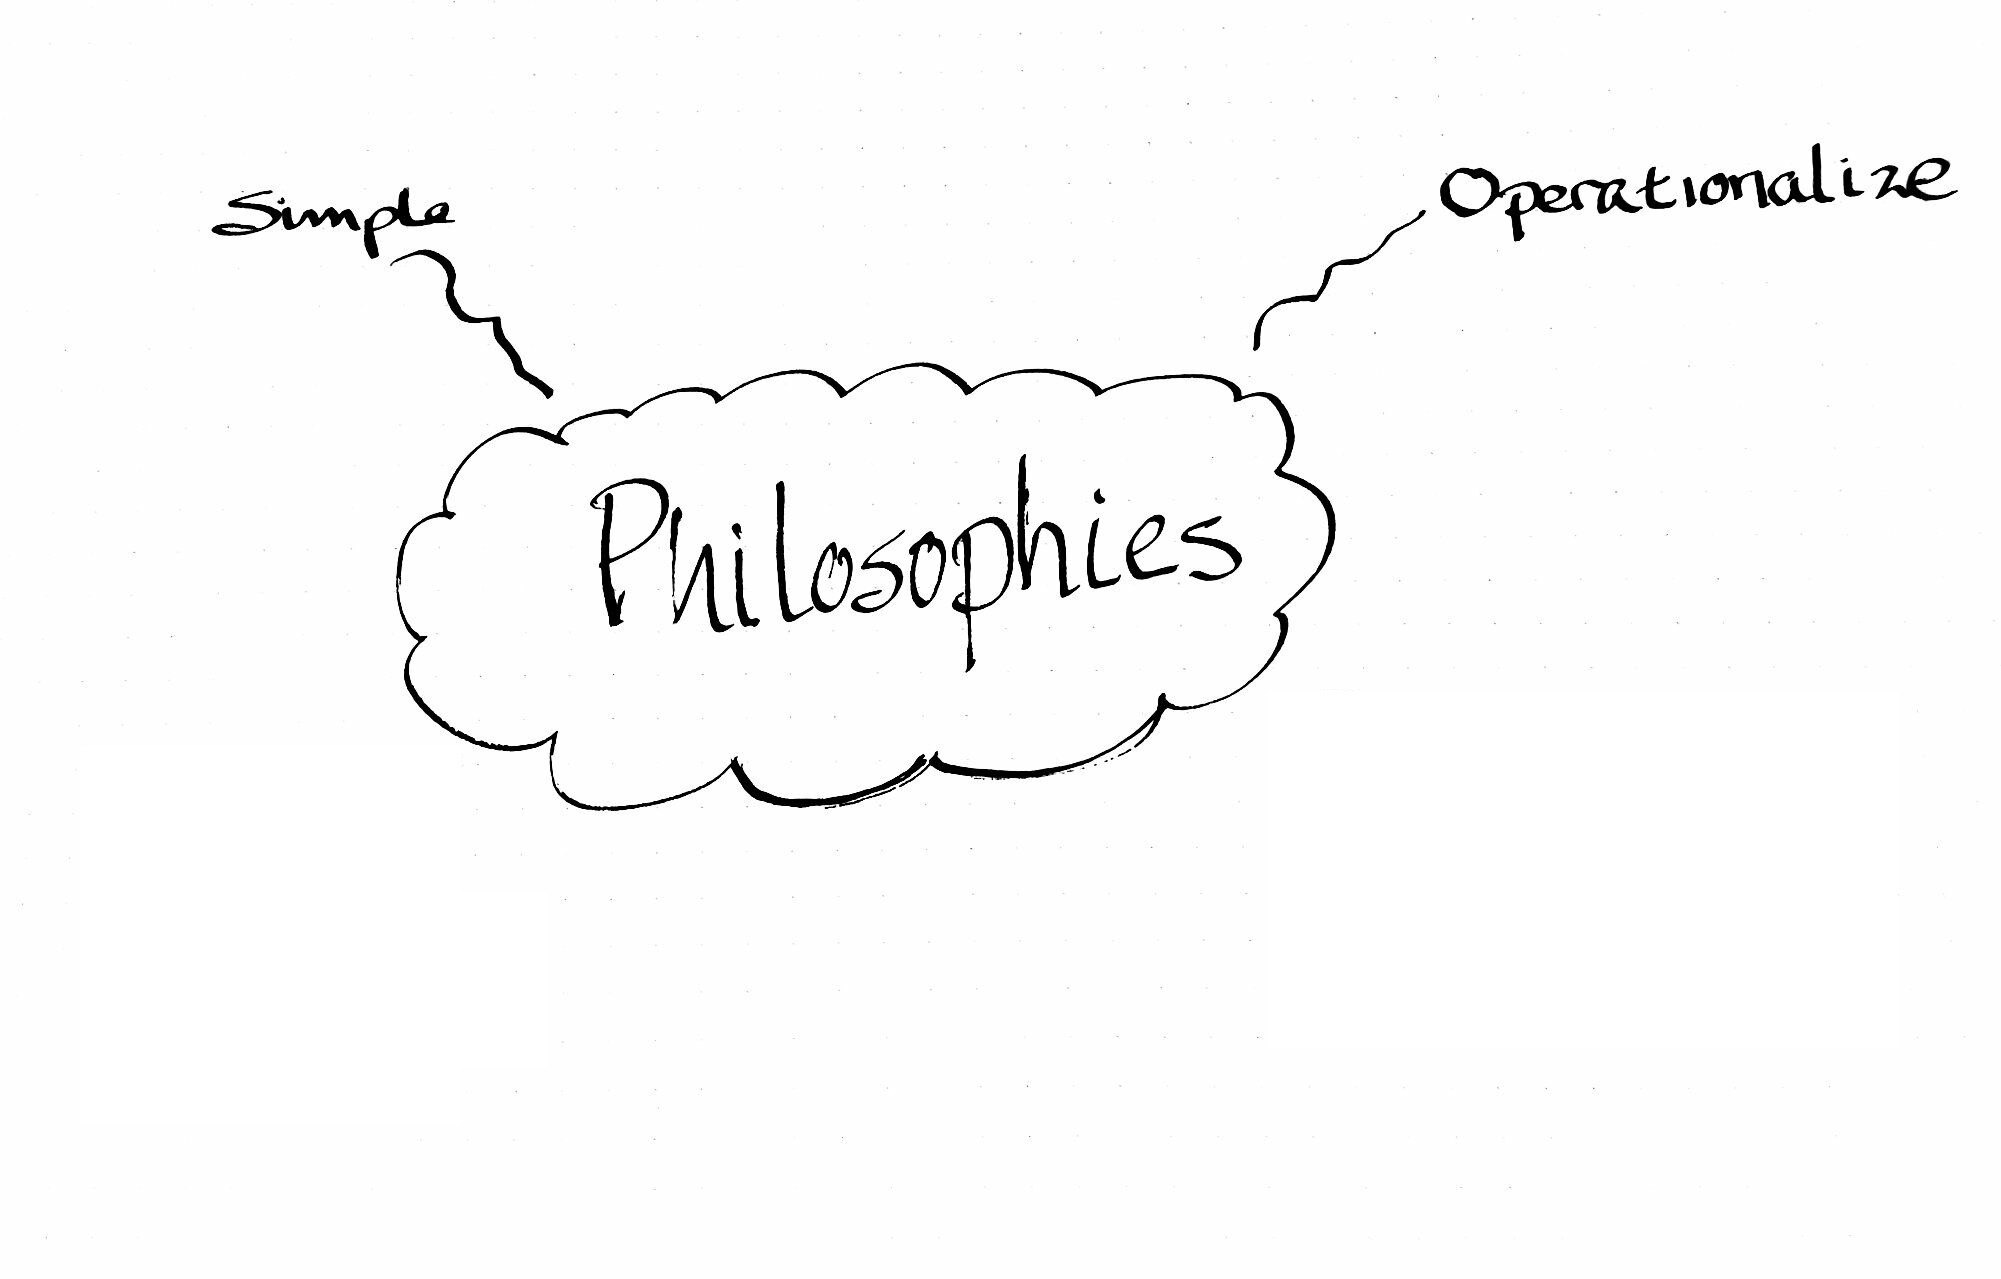 Simple
Operationalize
Philosophies